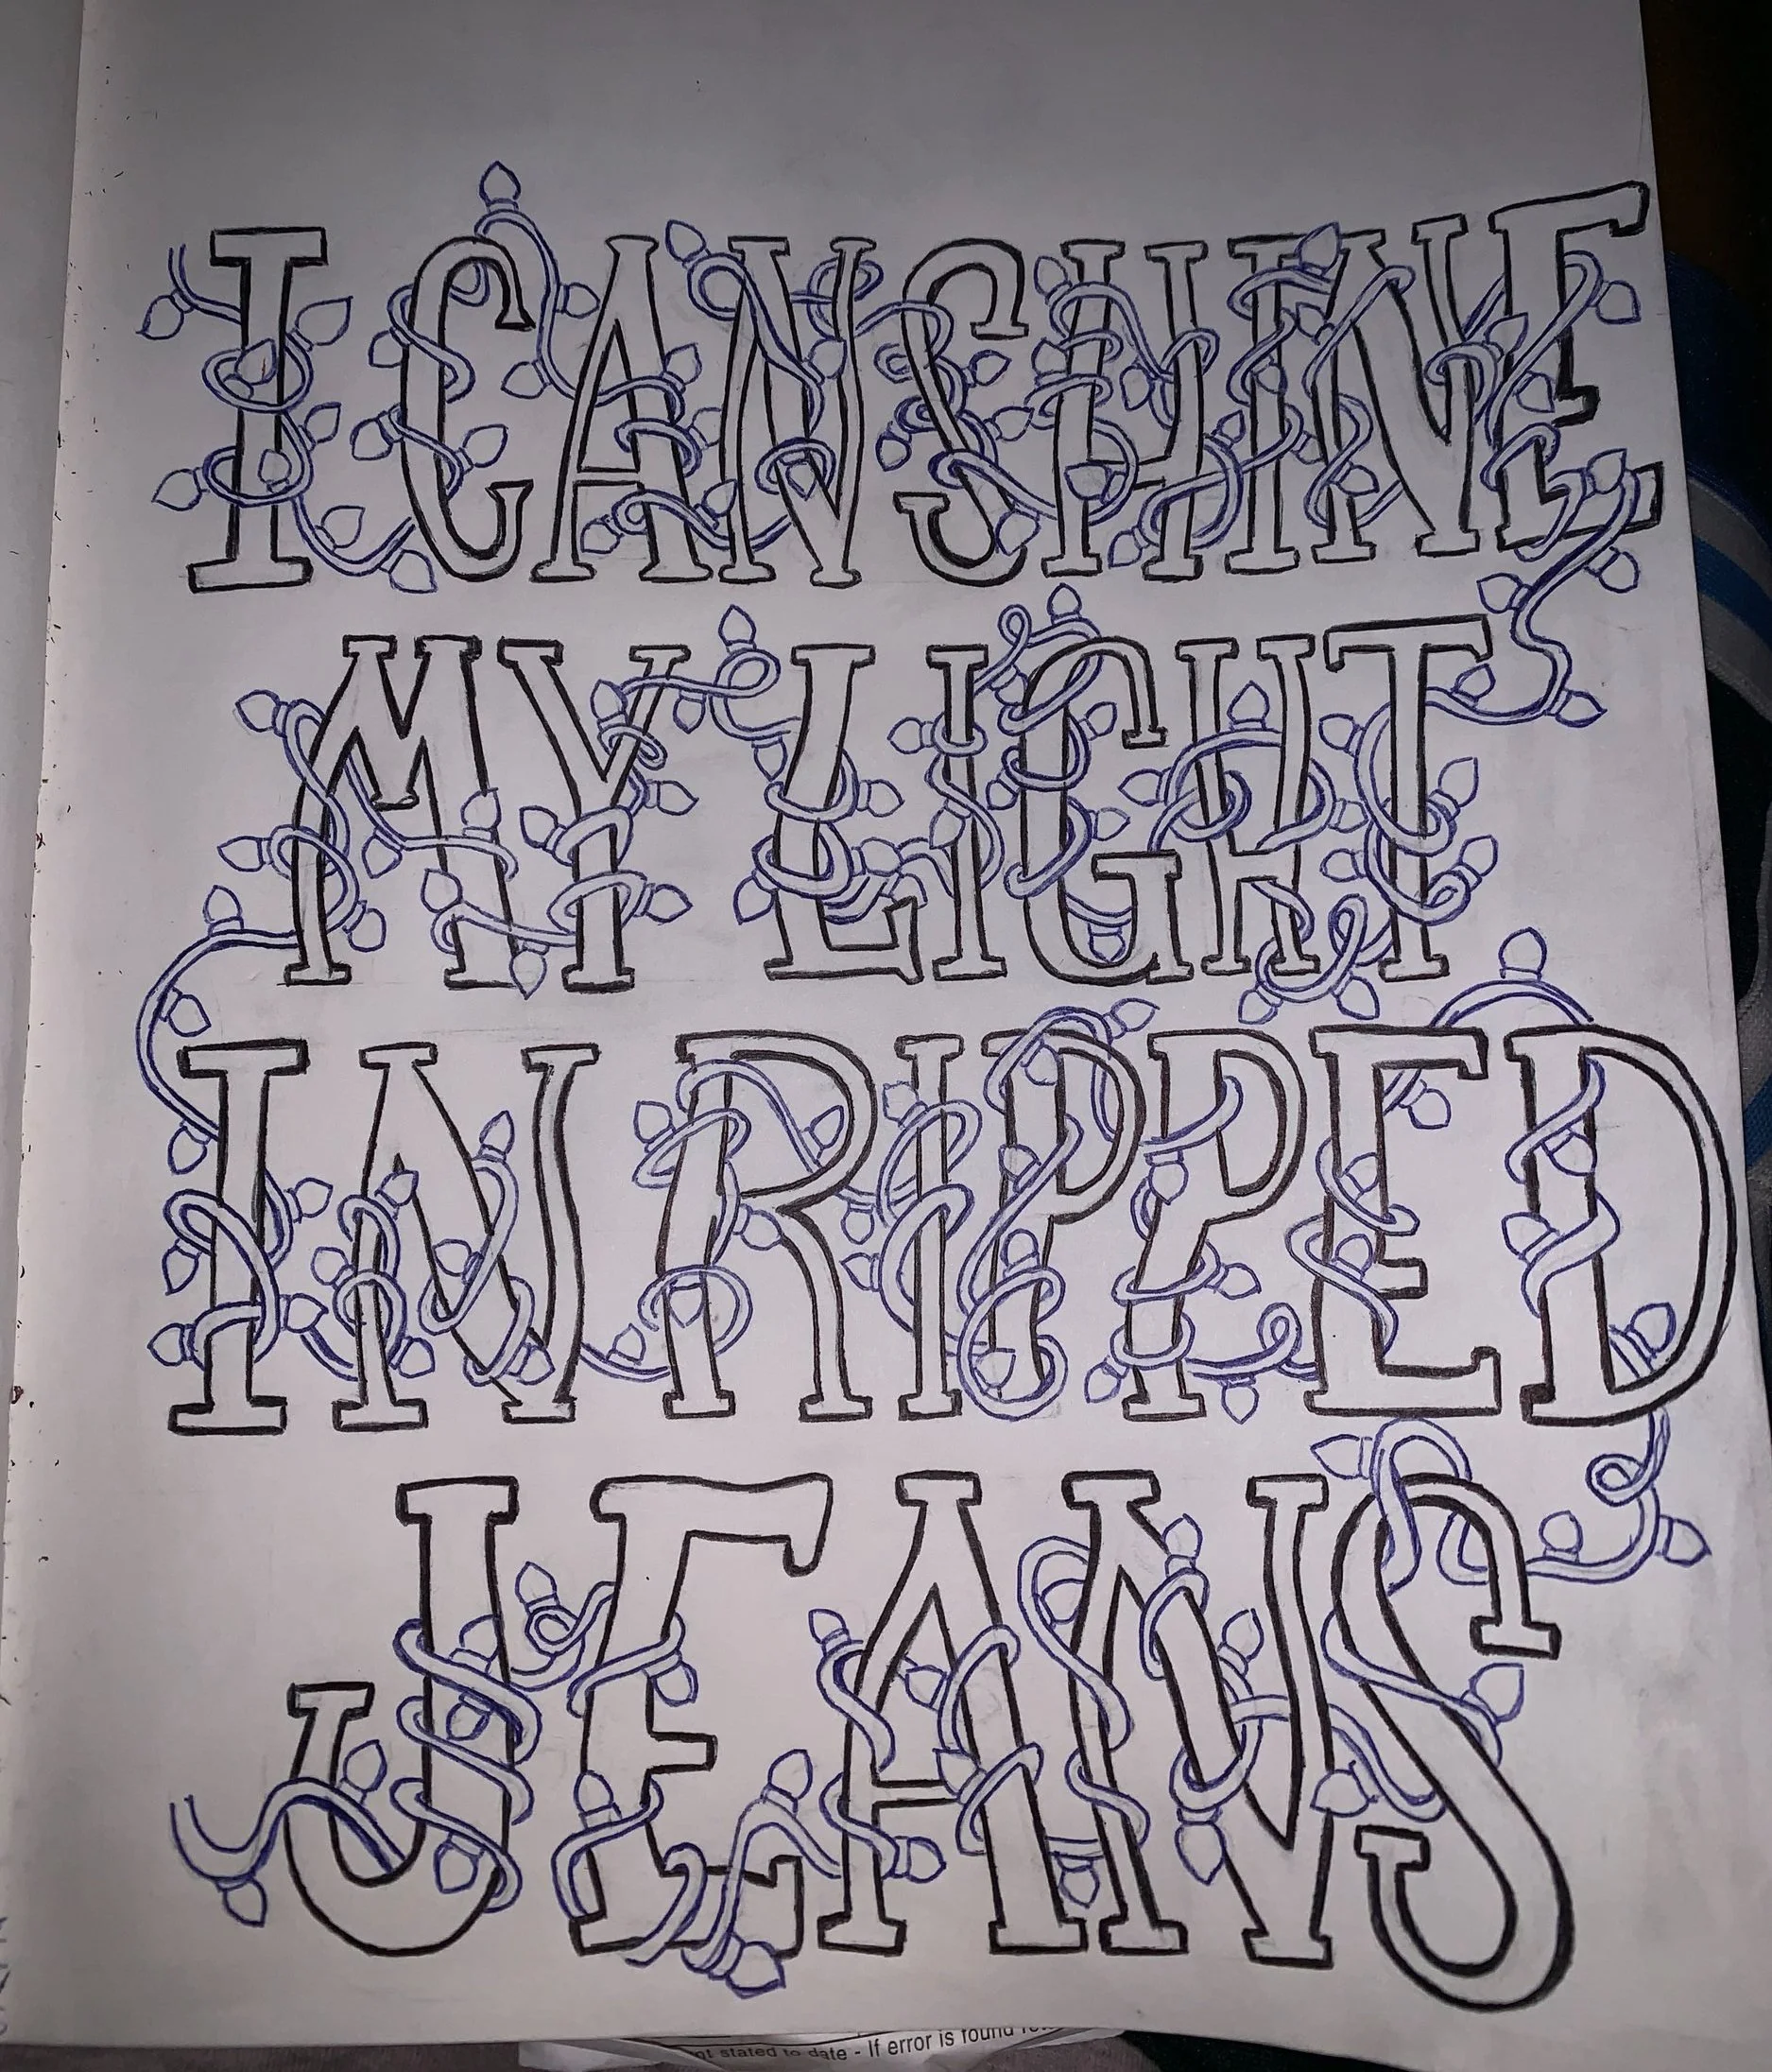 I CAN SHINE
MY LIGHT
IN RIPPED
JEANS
nt stated to date - If error is found